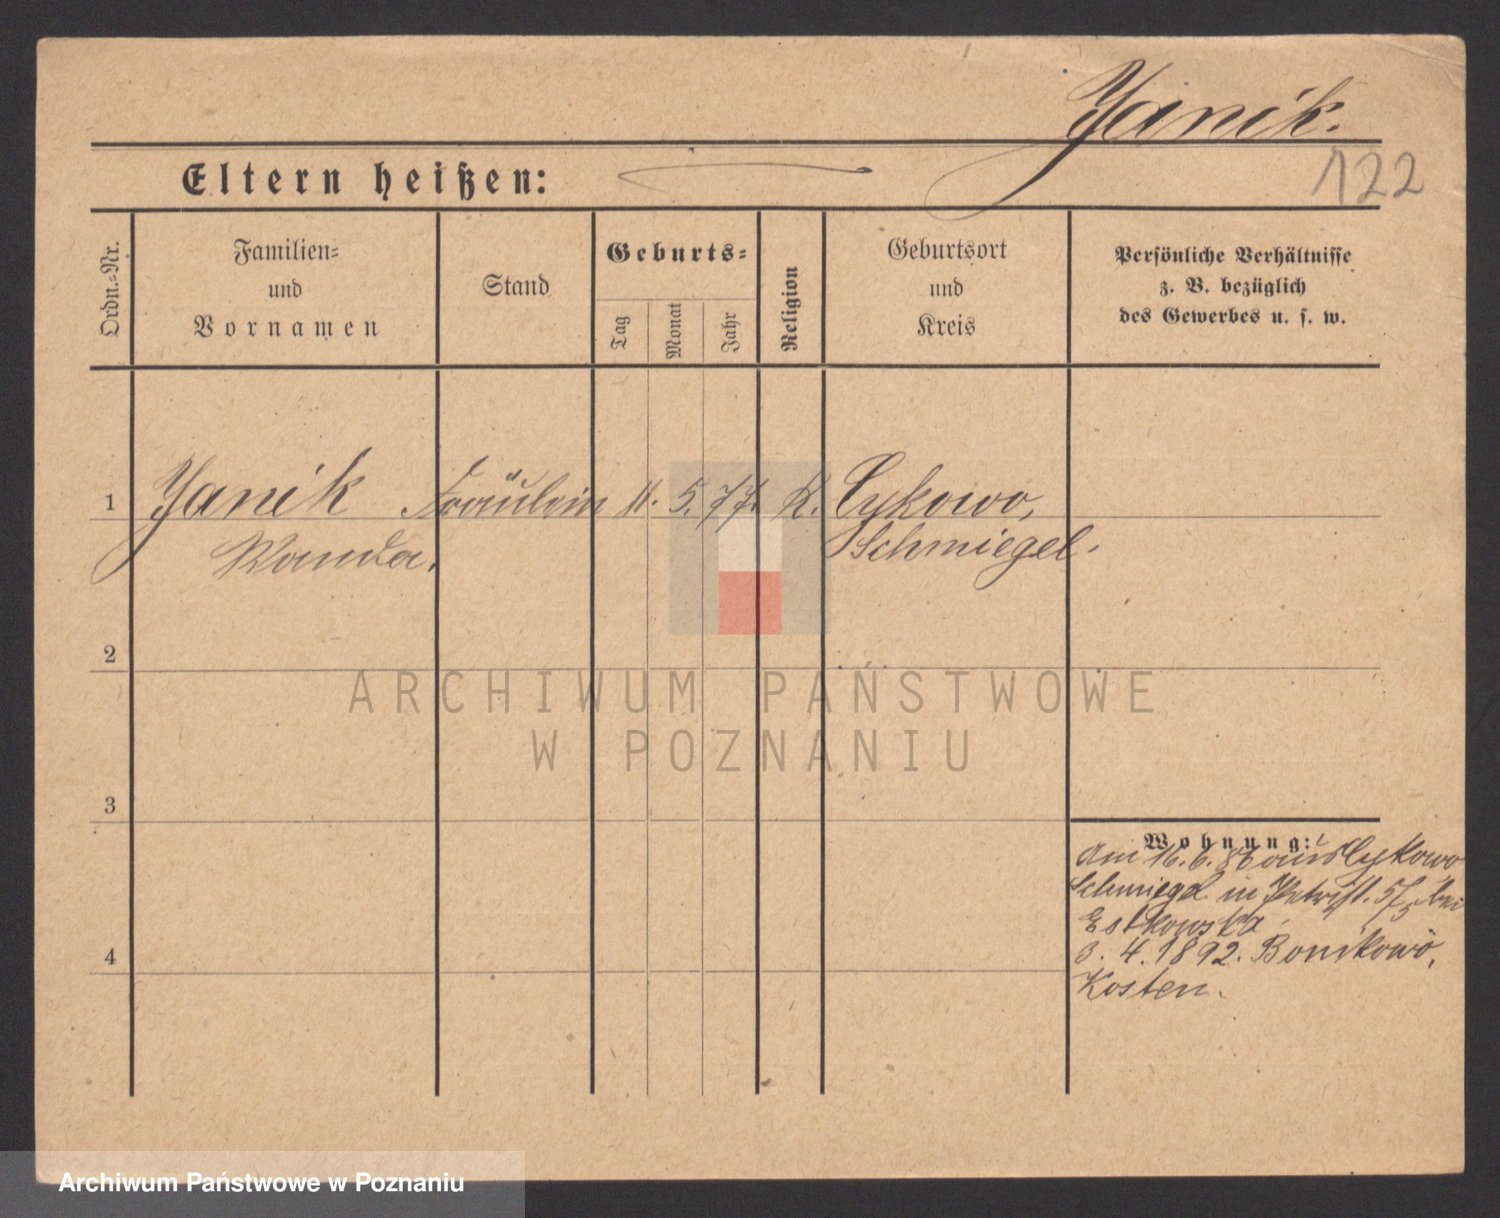 Janik.
122
Eltern heißen:
Ordn.-Nr.
Familien-
und
Vornamen
Stand
Geburts-
Tag
Monat
Jahr
Religion
Geburtsort
und
Kreis
Persönliche Verhältnisse
z. B. bezüglich
des Gewerbes u. s. w.
1 Janik Fräulein 11. 5. 77. K. Cykowo,
Wanda. Schmiegel.
2
ARCHIWUM PAŃSTWOWE
W POZNANIU
3
Wohnung:
Am 16. 6. 86 aus Cykowo
Schmiegel in Petrist. 5/5 bei
Estkowska
3. 4. 1892. Bonikowo,
Kosten.
4
Archiwum Państwowe w Poznaniu